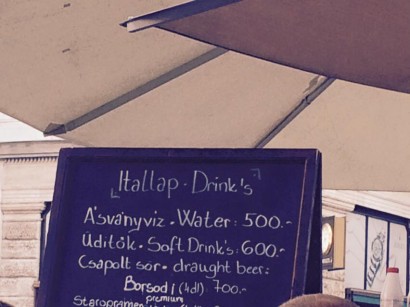 Itallap - Drink's
Ásványvíz - Water: 500.-
Üditők - Soft Drink's: 600.-
Csapolt sör - draught beer:
Borsodi (4dl) 700.-
premium
Staropramen